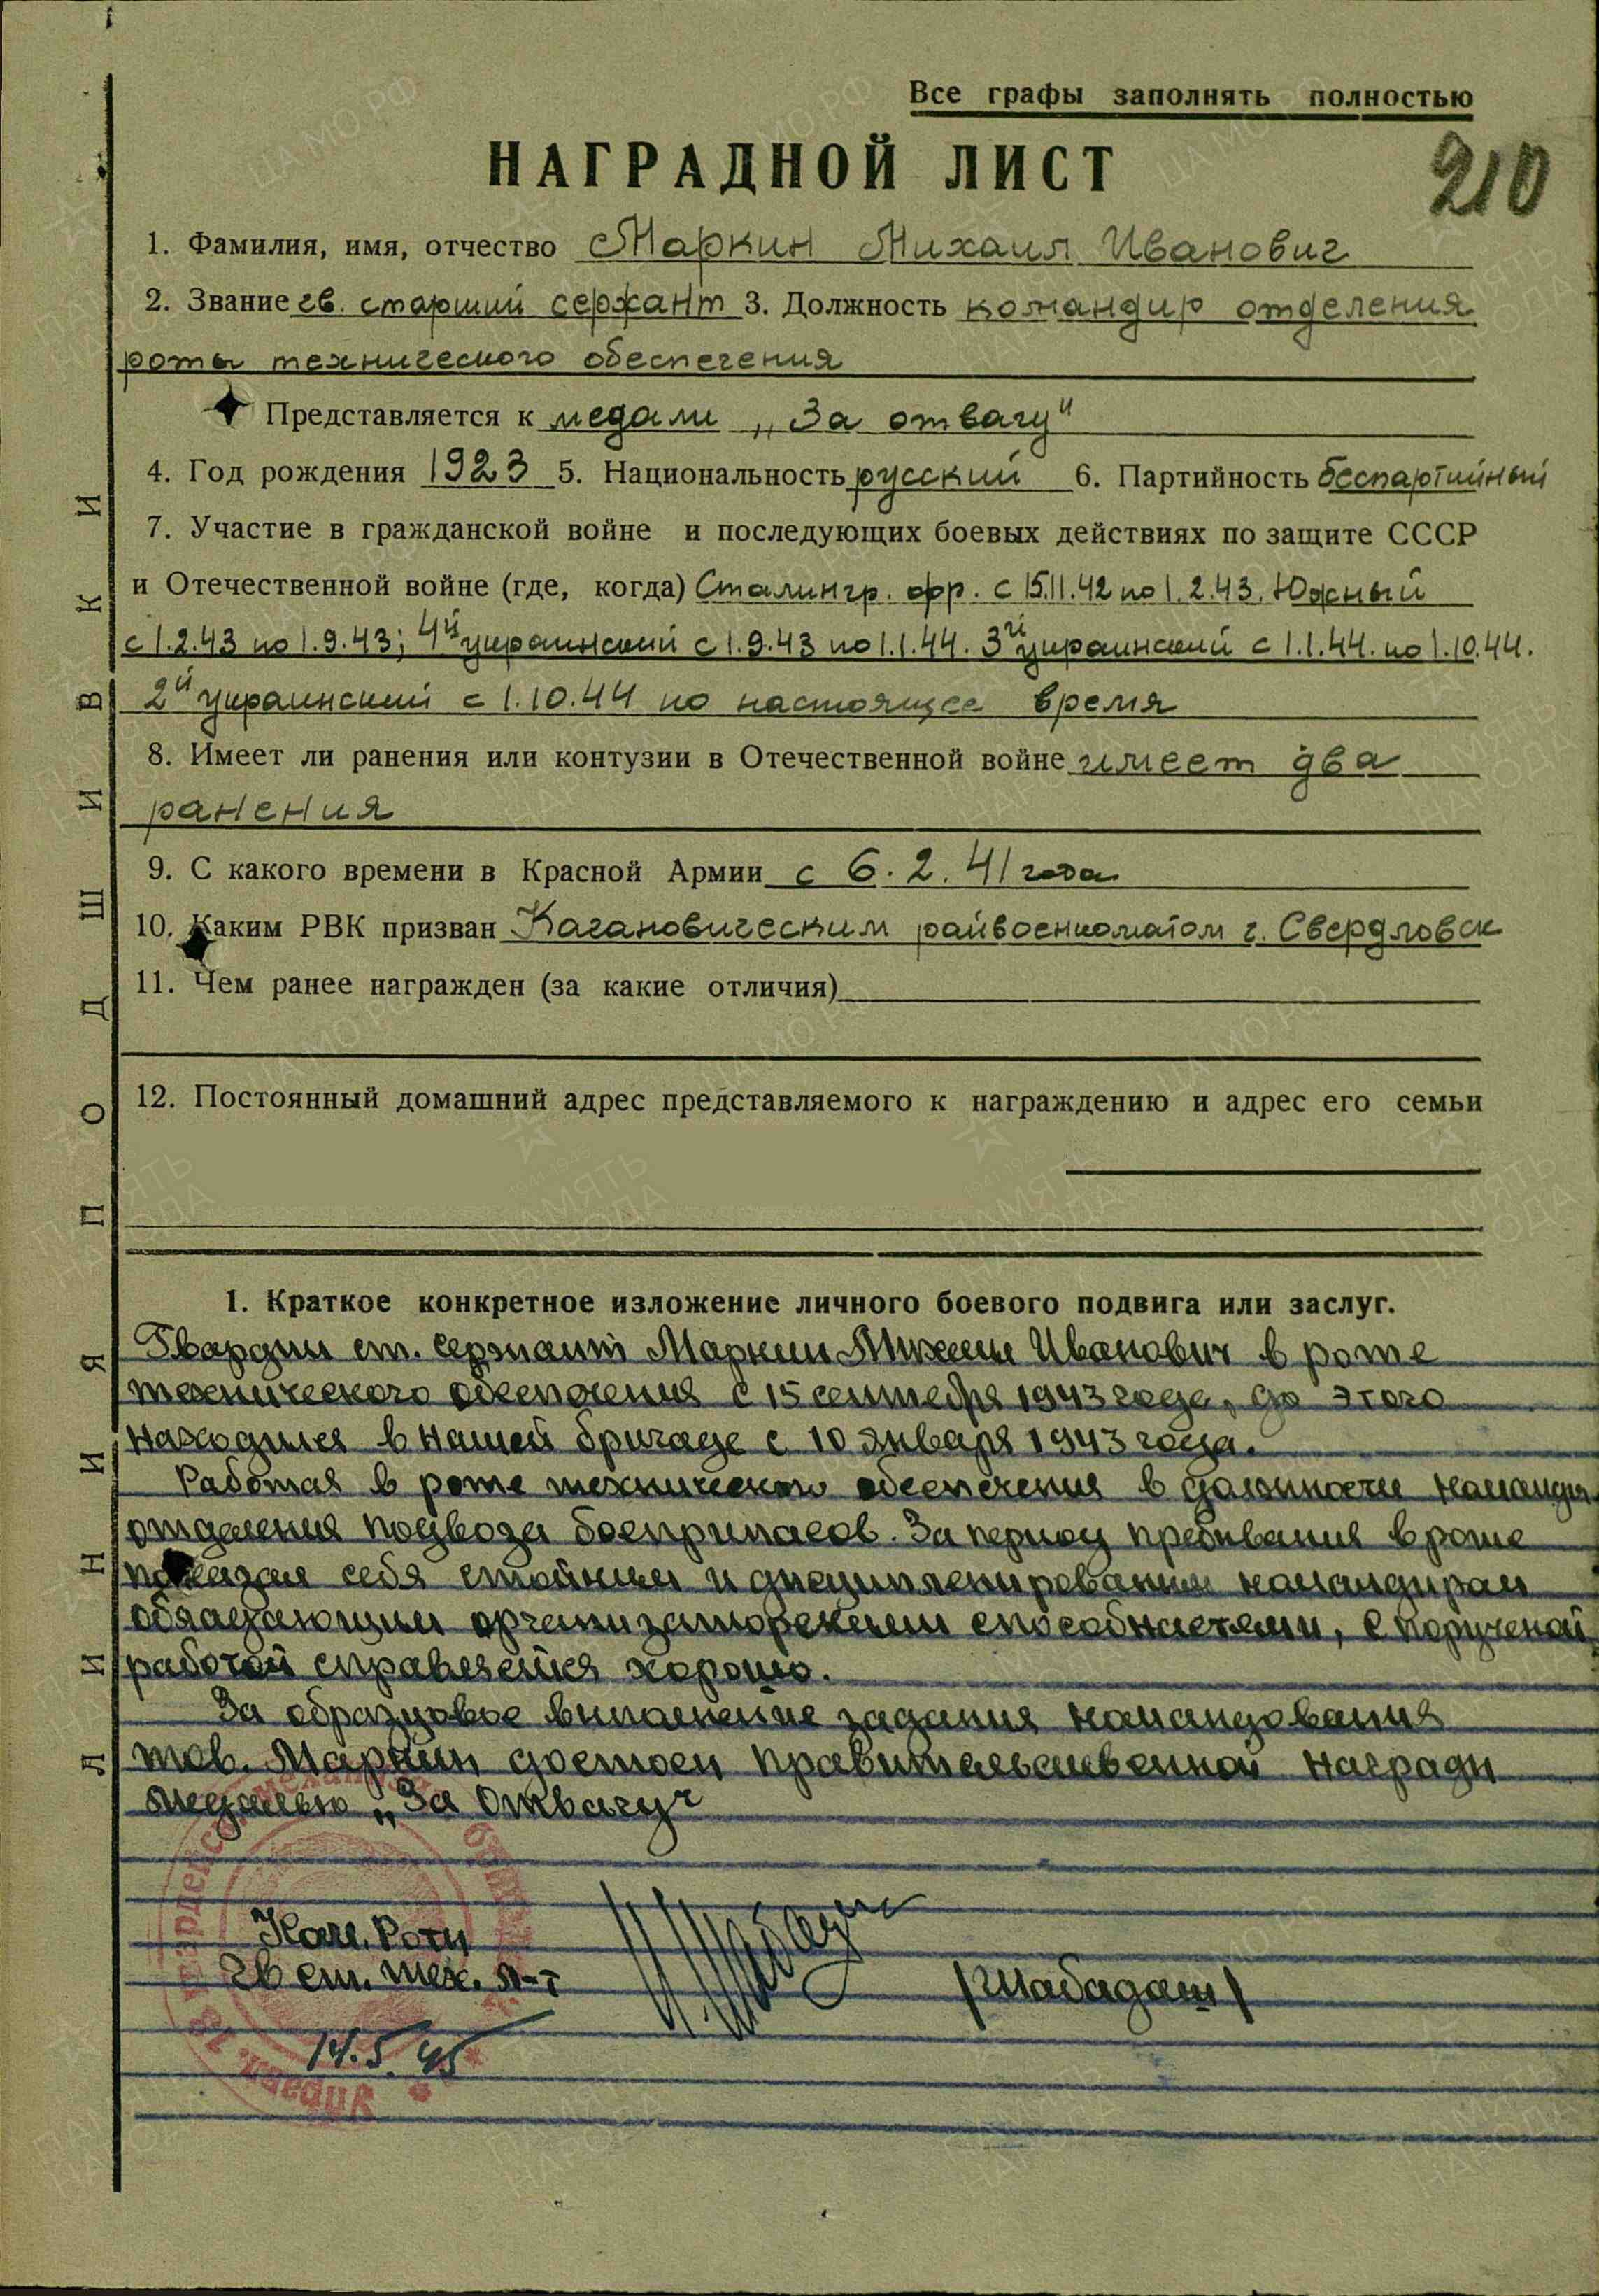 Все графы заполнять полностью
НАГРАДНОЙ ЛИСТ
210
1. Фамилия, имя, отчество Маркин Михаил Иванович
2. Звание гв. старший сержант 3. Должность командир отделения
роты технического обеспечения
Представляется к медали „За отвагу"
4. Год рождения 1923 5. Национальность русский 6. Партийность беспартийный
7. Участие в гражданской войне и последующих боевых действиях по защите СССР
и Отечественной войне (где, когда) Сталингр. фр. с 15.11.42 по 1.2.43. Южный
с 1.2.43 по 1.9.43; 4й украинский с 1.9.43 по 1.1.44. 3й украинский с 1.1.44. по 1.10.44.
2й украинский с 1.10.44 по настоящее время
8. Имеет ли ранения или контузии в Отечественной войне имеет два
ранения
9. С какого времени в Красной Армии с 6.2.41 года
10. Каким РВК призван Кагановическим райвоенкоматом г. Свердловск
11. Чем ранее награжден (за какие отличия)
12. Постоянный домашний адрес представляемого к награждению и адрес его семьи
1. Краткое конкретное изложение личного боевого подвига или заслуг.
Гвардии ст. сержант Маркин Михаил Иванович в роте
технического обеспечения с 15 сентября 1943 года, до этого
находился в нашей бригаде с 10 января 1943 года.
Работая в роте технического обеспечения в должности командира
отделения подвоза боеприпасов. За период пребивания в роте
показал себя стойким и дисциплинированим командиром
обладающим организаторскими способностями, с порученой
работой справляется хорошо.
За образцовое выполнение задания командования
тов. Маркин достоен правительственной награды
медалью „За Отвагу"
Ком. Роты
Гв ст. тех. л-т
/Шабадаш/
14.5.45
ЛИНИЯ ПОДШИВКИ
ЦА МО.РФ
ПАМЯТЬ НАРОДА